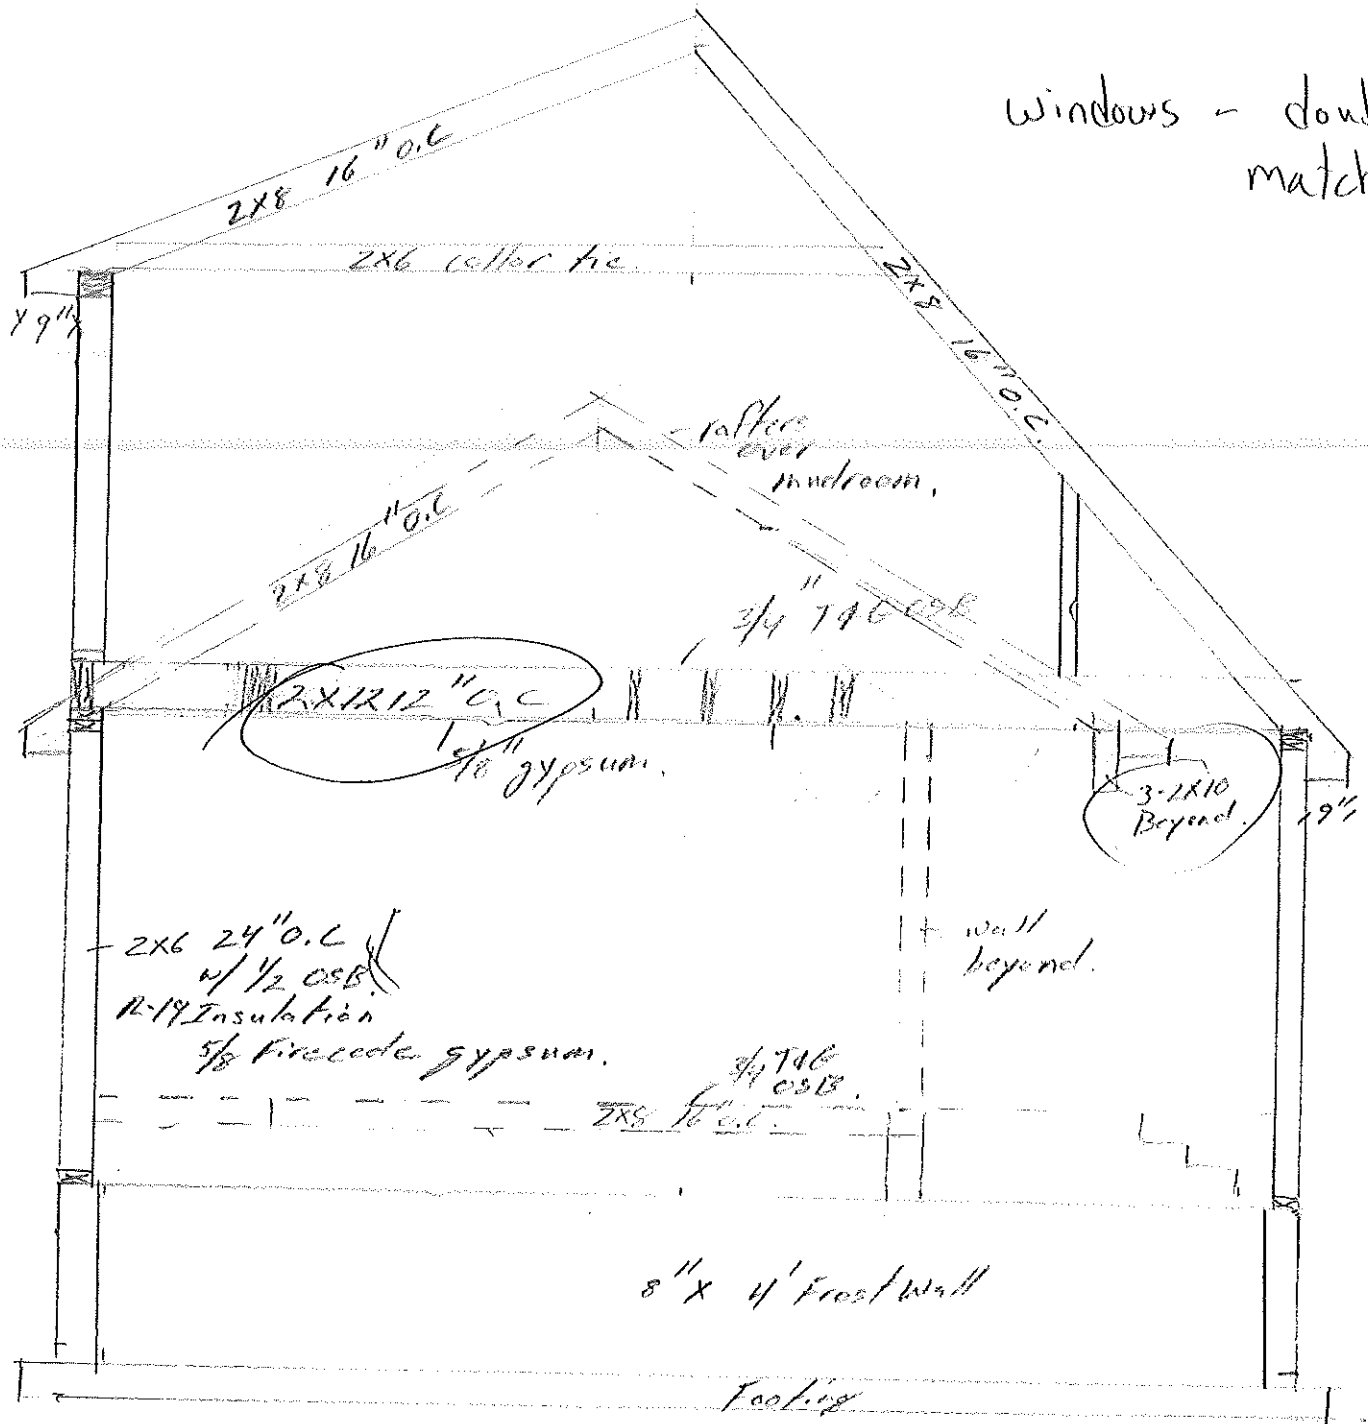 windows - doub
match
2X8 16" O.C
2X6 collar tie
9"
2X8 16" O.C.
rafters
over
mudroom.
2X8 16" O.C
3/4" T&G OSB
2X12 12" O.C
5/8" gypsum.
3-2X10
Beyond.
9"
2X6 24" O.C
w/ 1/2 OSB
R-19 Insulation
5/8 Firecode gypsum.
wall
beyond.
3/4 T&G
OSB.
2X8 16" O.C.
8" X 4' Frost Wall
Footing